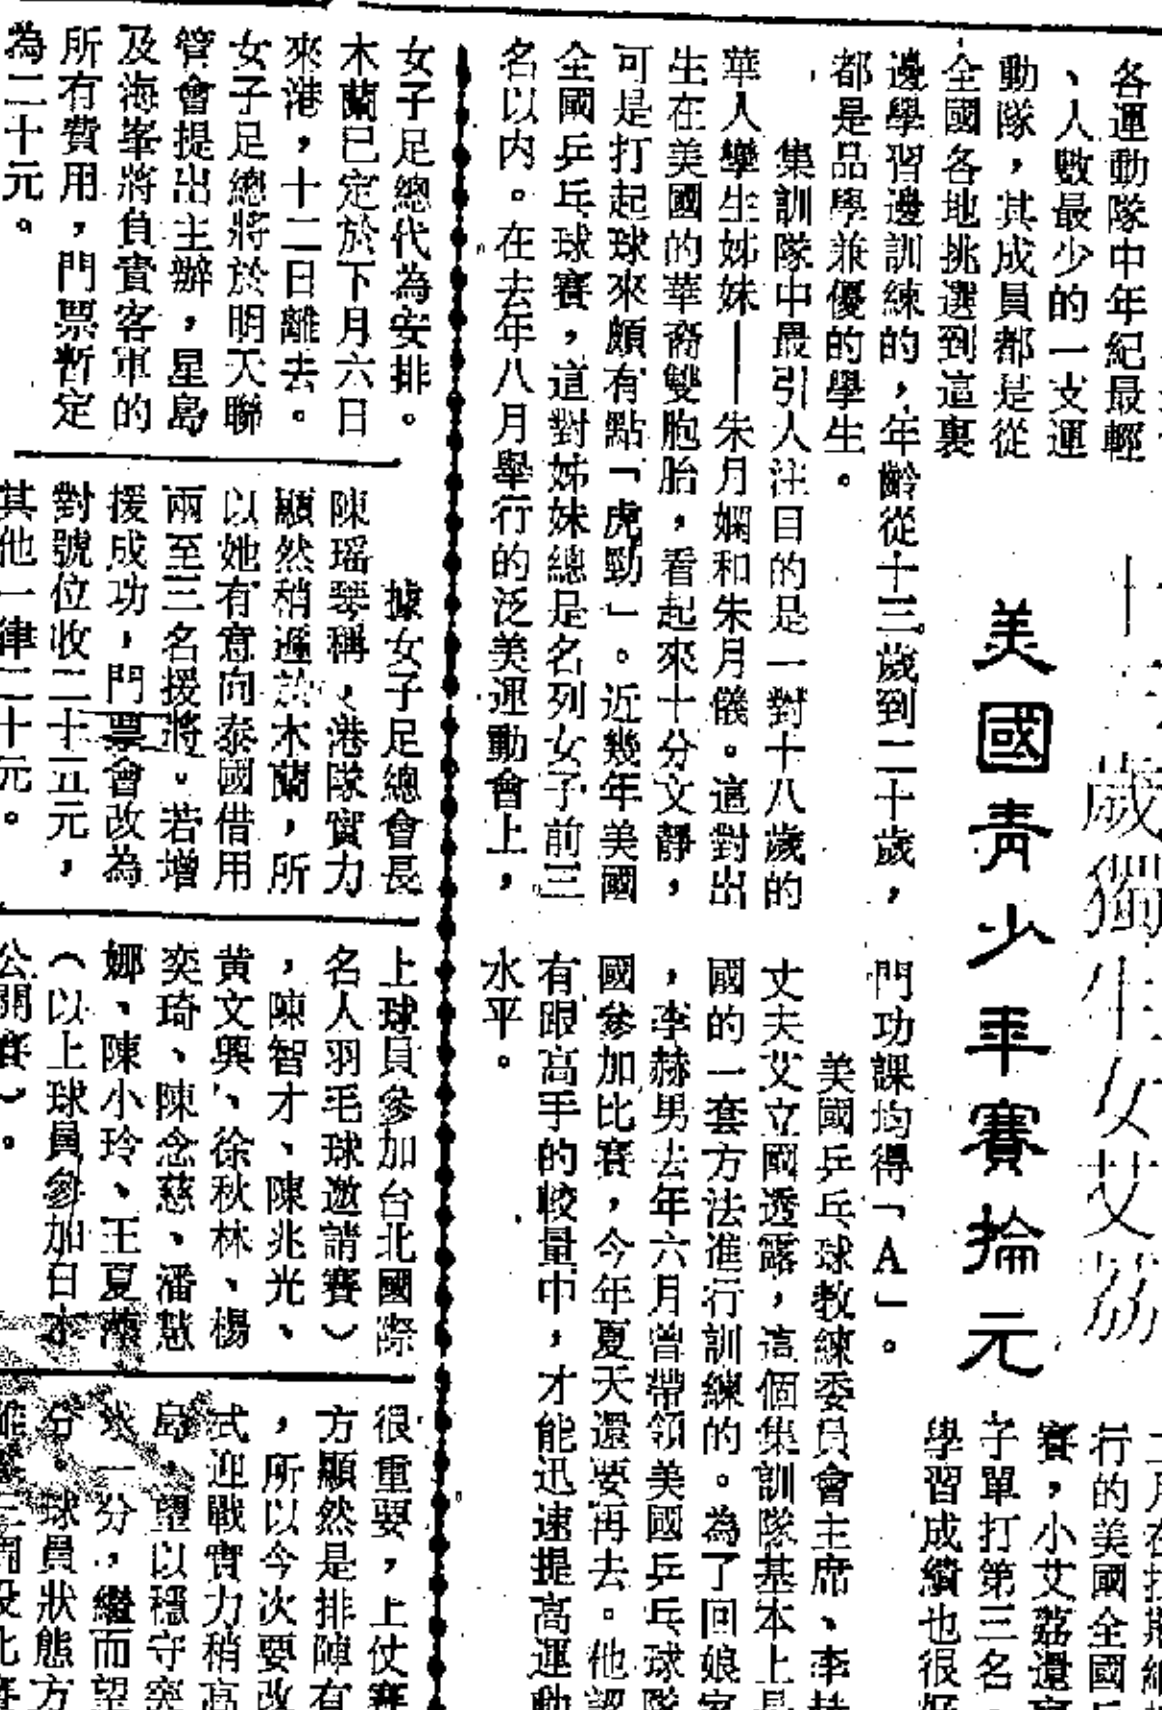 各運動隊中年紀最輕
、人數最少的一支運
動隊，其成員都是從
全國各地挑選到這裏
邊學習邊訓練的，年齡從十三歲到二十歲，
都是品學兼優的學生。
集訓隊中最引人注目的是一對十八歲的
華人孿生姊妹——朱月嫻和朱月儀。這對出
生在美國的華裔雙胞胎，看起來十分文靜，
可是打起球來頗有點「虎勁」。近幾年美國
全國乒乓球賽，這對姊妹總是名列女子前三
名以內。在去年八月舉行的泛美運動會上，
歲獨生女艾荔
美國青少年賽掄元
行的美國全國
賽，小艾荔還
子單打第三名，
學習成績也很
門功課均得「A」。
美國乒乓球教練委員會主席、李
丈夫艾立國透露，這個集訓隊基本上是
國的一套方法進行訓練的。為了回娘家
，李赫男去年六月曾帶領美國乒乓球隊
國參加比賽，今年夏天還要再去。他認
有跟高手的較量中，才能迅速提高運動
水平。
女子足總代為安排。
木蘭已定於下月六日
來港，十二日離去。
女子足總將於明天聯
管會提出主辦，星島
及海峯將負責客軍的
所有費用，門票暫定
為二十元。
據女子足總會長
陳瑤琴稱，港隊實力
顯然稍遜於木蘭，所
以她有意向泰國借用
兩至三名援將。若增
援成功，門票會改為
對號位收二十五元，
其他一律二十元。
上球員參加台北國際
名人羽毛球邀請賽）
，陳智才、陳兆光、
黃文興、徐秋林、楊
奕琦、陳念慈、潘慧
娜、陳小玲、王夏
（以上球員參加日本
公開賽）。
很重要，上仗賽
方顯然是排陣有
，所以今次要改
式迎戰實力稍高
島，望以穩守突
一分，繼而望
分。球員狀態方